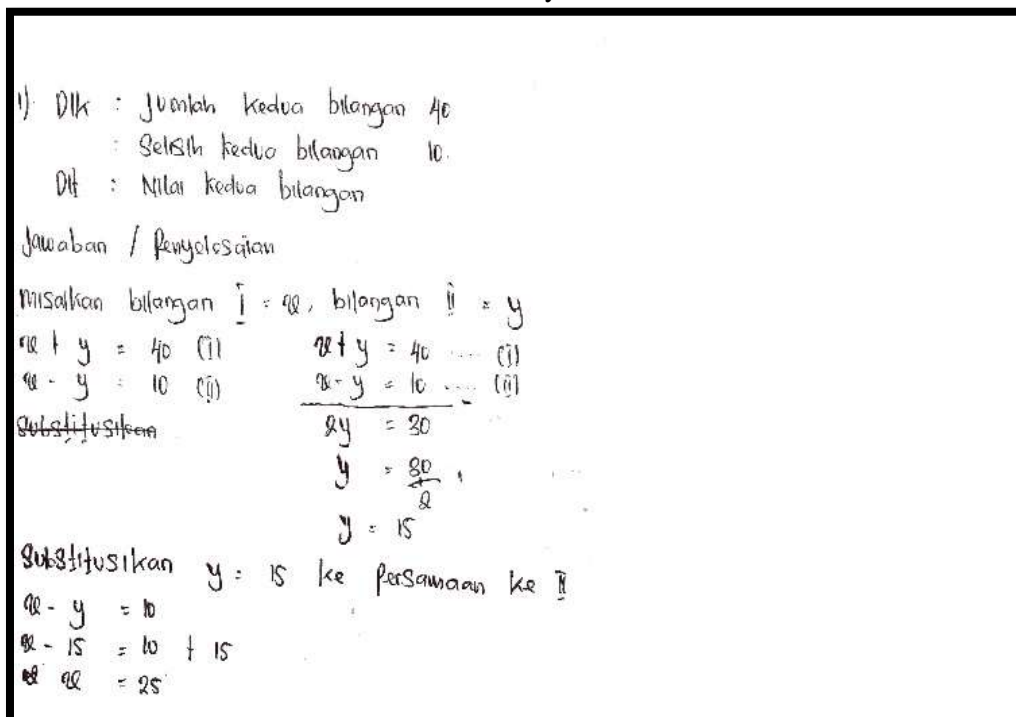 1) Dik : Jumlah kedua bilangan 40
: Selisih kedua bilangan 10.
Dit : Nilai kedua bilangan
Jawaban / Penyelesaian
misalkan bilangan I = x, bilangan II = y
x + y = 40 (I) x + y = 40 .... (I)
x - y = 10 (II) x - y = 10 .... (II) -
Substitusikan 2y = 30
y = 30/2
y = 15
Substitusikan y = 15 ke persamaan ke II
x - y = 10
x - 15 = 10 + 15
x = 25